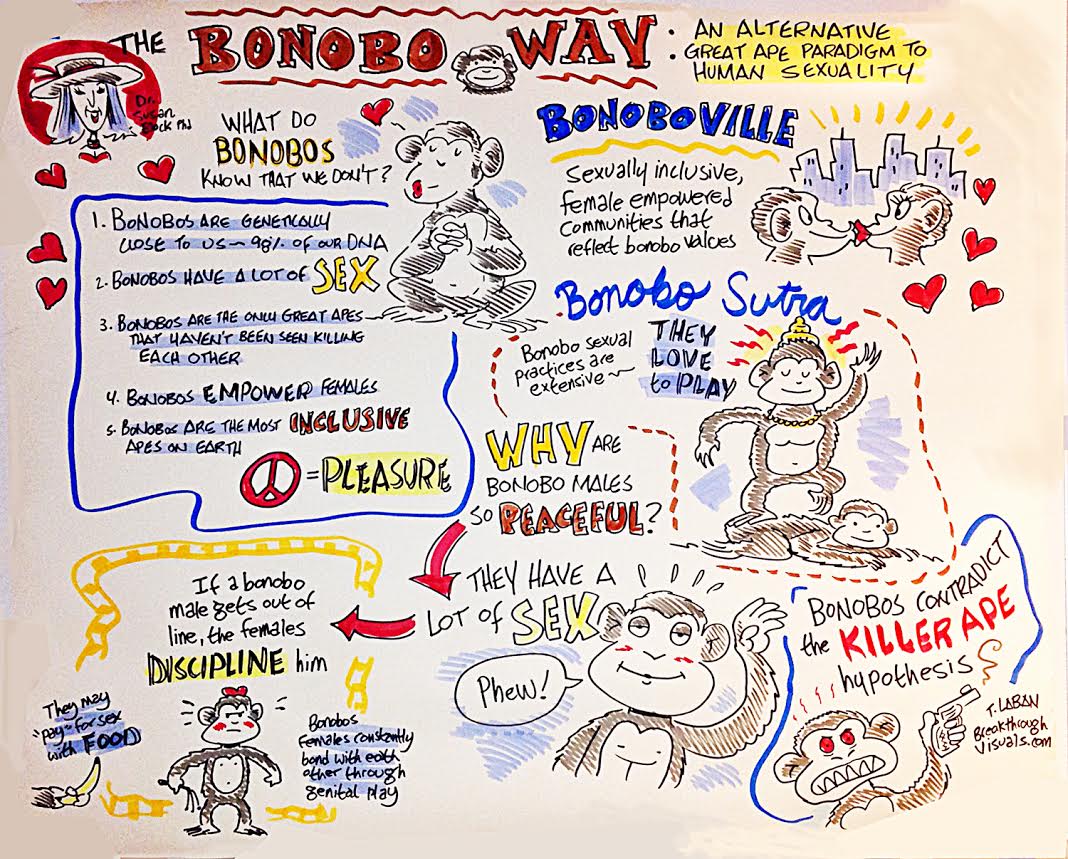 THE BONOBO WAY:
AN ALTERNATIVE
GREAT APE PARADIGM TO
HUMAN SEXUALITY
Dr.
Susan
Block PhD
WHAT DO
BONOBOS
KNOW THAT WE DON'T?
1. BONOBOS ARE GENETICALLY
CLOSE TO US~ 98% OF OUR DNA
2. BONOBOS HAVE A LOT OF SEX
3. BONOBOS ARE THE ONLY GREAT APES
THAT HAVEN'T BEEN SEEN KILLING
EACH OTHER
4. BONOBOS EMPOWER FEMALES
5. BONOBOS ARE THE MOST INCLUSIVE
APES ON EARTH
= PLEASURE
BONOBOVILLE
Sexually inclusive,
female empowered
communities that
reflect bonobo values
Bonobo Sutra
Bonobo sexual
practices are
extensive~
THEY
LOVE
to PLAY
WHY ARE
BONOBO MALES
SO PEACEFUL?
THEY HAVE A
LOT OF SEX
Phew!
If a bonobo
male gets out of
line, the females
DISCIPLINE him
They may
"pay" for sex
with FOOD
Bonobos
females constantly
bond with eath
other through
genital play
BONOBOS CONTRADICT
the KILLER APE
hypothesis
T. LABAN
Breakthrough
Visuals.com